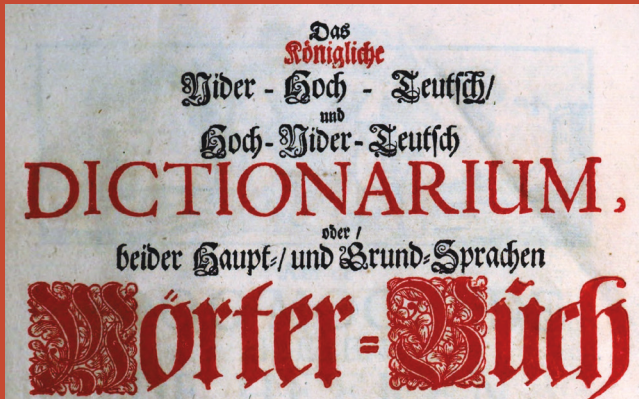 Das
Königliche
Nider - Hoch - Teutsch/
und
Hoch-Nider-Teutsch
DICTIONARIUM,
oder/
beider Haupt-/ und Grund-Sprachen
Wörter-Buch